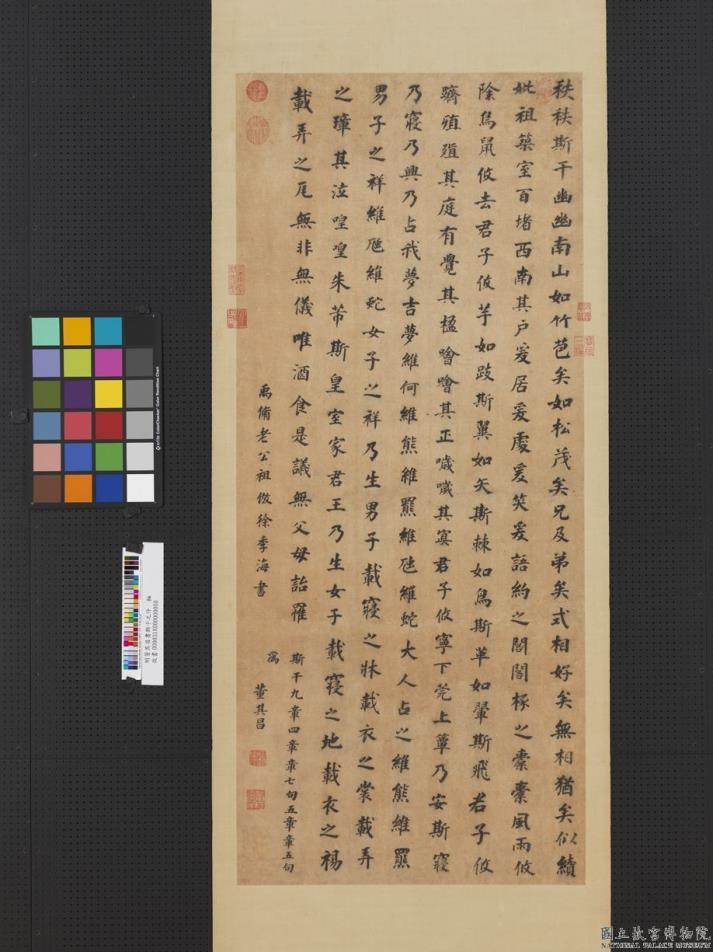 秩秩斯干幽幽南山如竹苞矣如松茂矣兄及弟矣式相好矣無相猶矣似續
妣祖築室百堵西南其户爰居爰處爰笑爰語約之閣閣椓之橐橐風雨攸
除鳥鼠攸去君子攸芋如跂斯翼如矢斯棘如鳥斯革如翬斯飛君子攸
躋殖殖其庭有覺其楹噲噲其正噦噦其冥君子攸寧下莞上簟乃安斯寢
乃寢乃興乃占我夢吉夢維何維熊維羆維虺維蛇大人占之維熊維羆
男子之祥維虺維蛇女子之祥乃生男子載寢之牀載衣之裳載弄
之璋其泣喤喤朱芾斯皇室家君王乃生女子載寢之地載衣之裼
載弄之瓦無非無儀唯酒食是議無父母詒罹
斯干九章四章章七句五章章五句
為
禹脩老公祖倣徐季海書
董其昌
明董其昌書斯干之什 軸
國立故宮博物院
NATIONAL PALACE MUSEUM